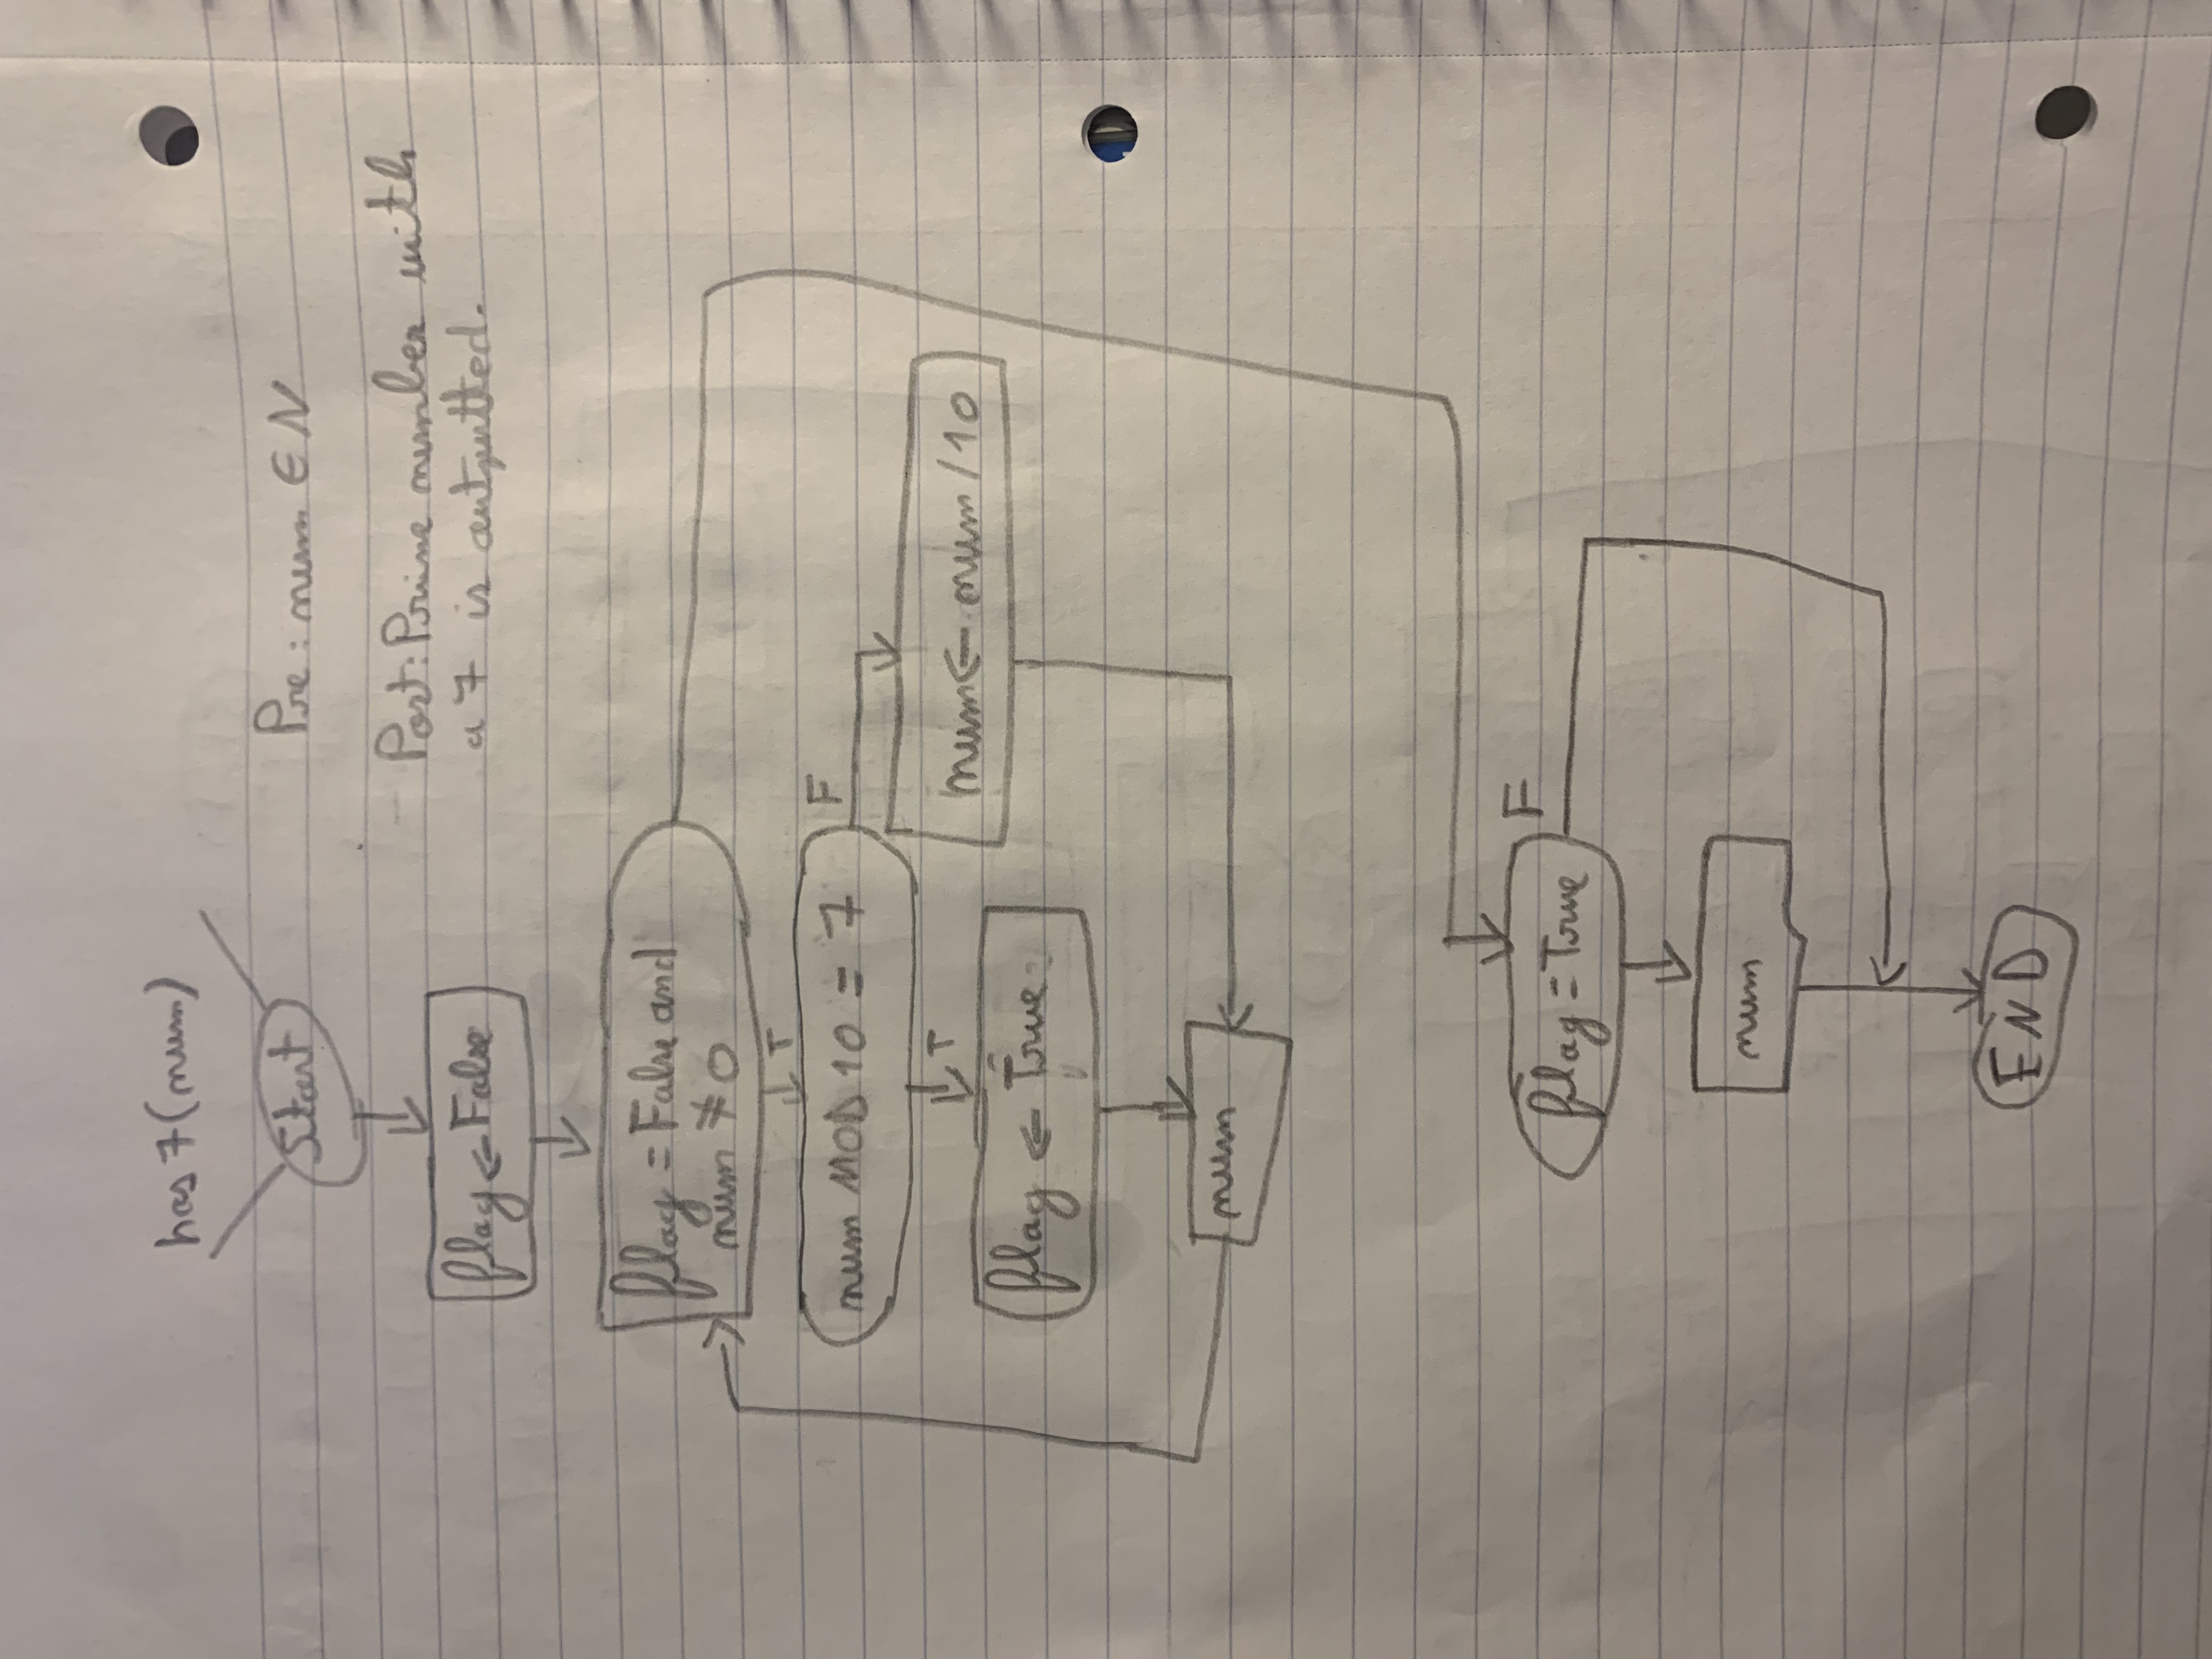 has 7(num)
Start
Pre: num ∈ N
Post: Prime number with
a 7 is outputted.
flag ← False
flag = False and
num ≠ 0
T
num MOD 10 = 7
F
T
num ← num / 10
flag ← True
num
flag = True
F
num
END